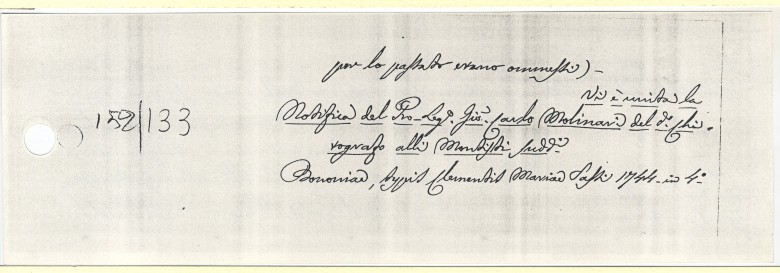 per lo passato erano ommessi) -
Vi è unita la
152|133
Notifica del Pro-Leg.º Gio. Carlo Molinari del d.º Chi-
rografo alli Montisti sudd.i
Bononiae, typis Clementis Mariae Sassi 1744 - in 4.º